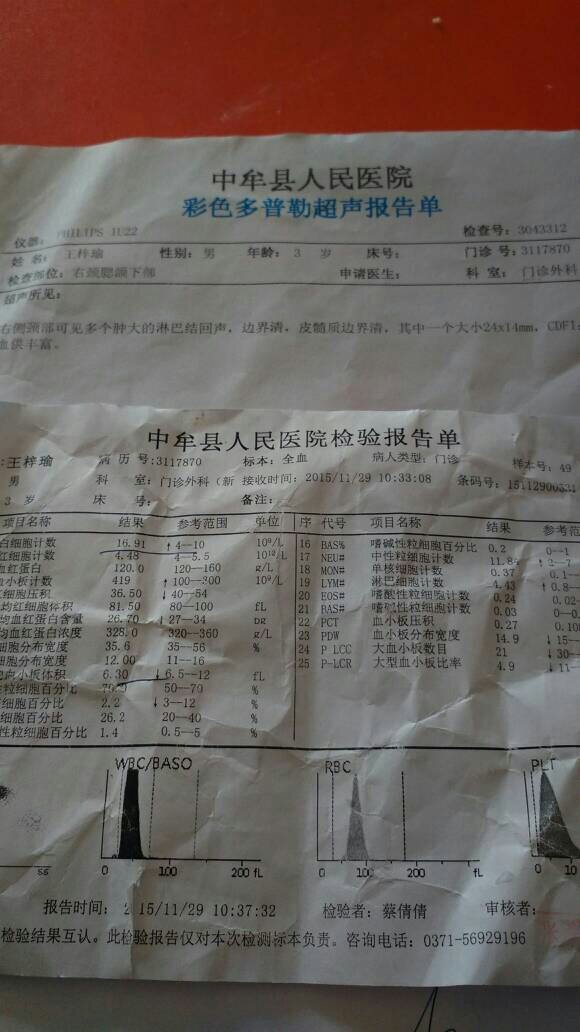 中牟县人民医院
彩色多普勒超声报告单
仪器: PHILIPS IU22 检查号: 3043312
姓 名: 王梓瑜 性别: 男 年龄: 3 岁 床号: 门诊 号: 3117870
检查部位: 右颈腮颌下部 申请医生: 科 室: 门诊外科
超声所见:
右侧颈部可见多个肿大的淋巴结回声，边界清，皮髓质边界清，其中一个大小24x14mm，CDFI:
血供丰富。
中牟县人民医院检验报告单
:王梓瑜 病 历 号:3117870 标本: 全血 病人类型: 门诊 样本号: 49
男 科 室: 门诊外科（新 接收时间: 2015/11/29 10:33:08 条码号:
3 岁 床 号: 备注:
项目名称 结果 参考范围 单位 序 代号 项目名称 结果 参考范
白细胞计数 16.91 ↑ 4--10 10^9/L 16 BAS% 嗜碱性粒细胞百分比 0.2 0--1
红细胞计数 4.48 4--5.5 10^12/L 17 NEU# 中性粒细胞计数 11.84 ↑ 2--7
血红蛋白 120.0 120--160 g/L 18 MON# 单核细胞计数 0.37 0.1--
血小板计数 419 ↑ 100--300 10^9/L 19 LYM# 淋巴细胞计数 4.43 ↑ 0.8--
红细胞压积 36.50 ↓ 40--54 20 EOS# 嗜酸性粒细胞计数 0.24 0.02-
均红细胞体积 81.50 80--100 fL 21 BAS# 嗜碱性粒细胞计数 0.03 0--0
均血红蛋白含量 26.70 ↓ 27--34 pg 22 PCT 血小板压积 0.27 0.108
均血红蛋白浓度 328.0 320--360 g/L 23 PDW 血小板分布宽度 14.9 ↓ 15--
细胞分布宽度 35.6 35--56 % 24 P LCC 大血小板数目 21 ↓ 30--
细胞分布宽度 12.00 11--16 25 P-LCR 大型血小板比率 4.9 ↓ 11--
均血小板体积 6.30 ↓ 6.5--12 fL
性粒细胞百分比 50--70 %
细胞百分比 2.2 ↓ 3--12 %
细胞百分比 26.2 20--40 %
性粒细胞百分比 1.4 0.5--5 %
WBC/BASO RBC PLT
0 100 200 fL 0 100 200 fL 0 10
报告时间: 2015/11/29 10:37:32 检验者: 蔡倩倩 审核者:
检验结果互认。此检验报告仅对本次检测标本负责。咨询电话: 0371-56929196